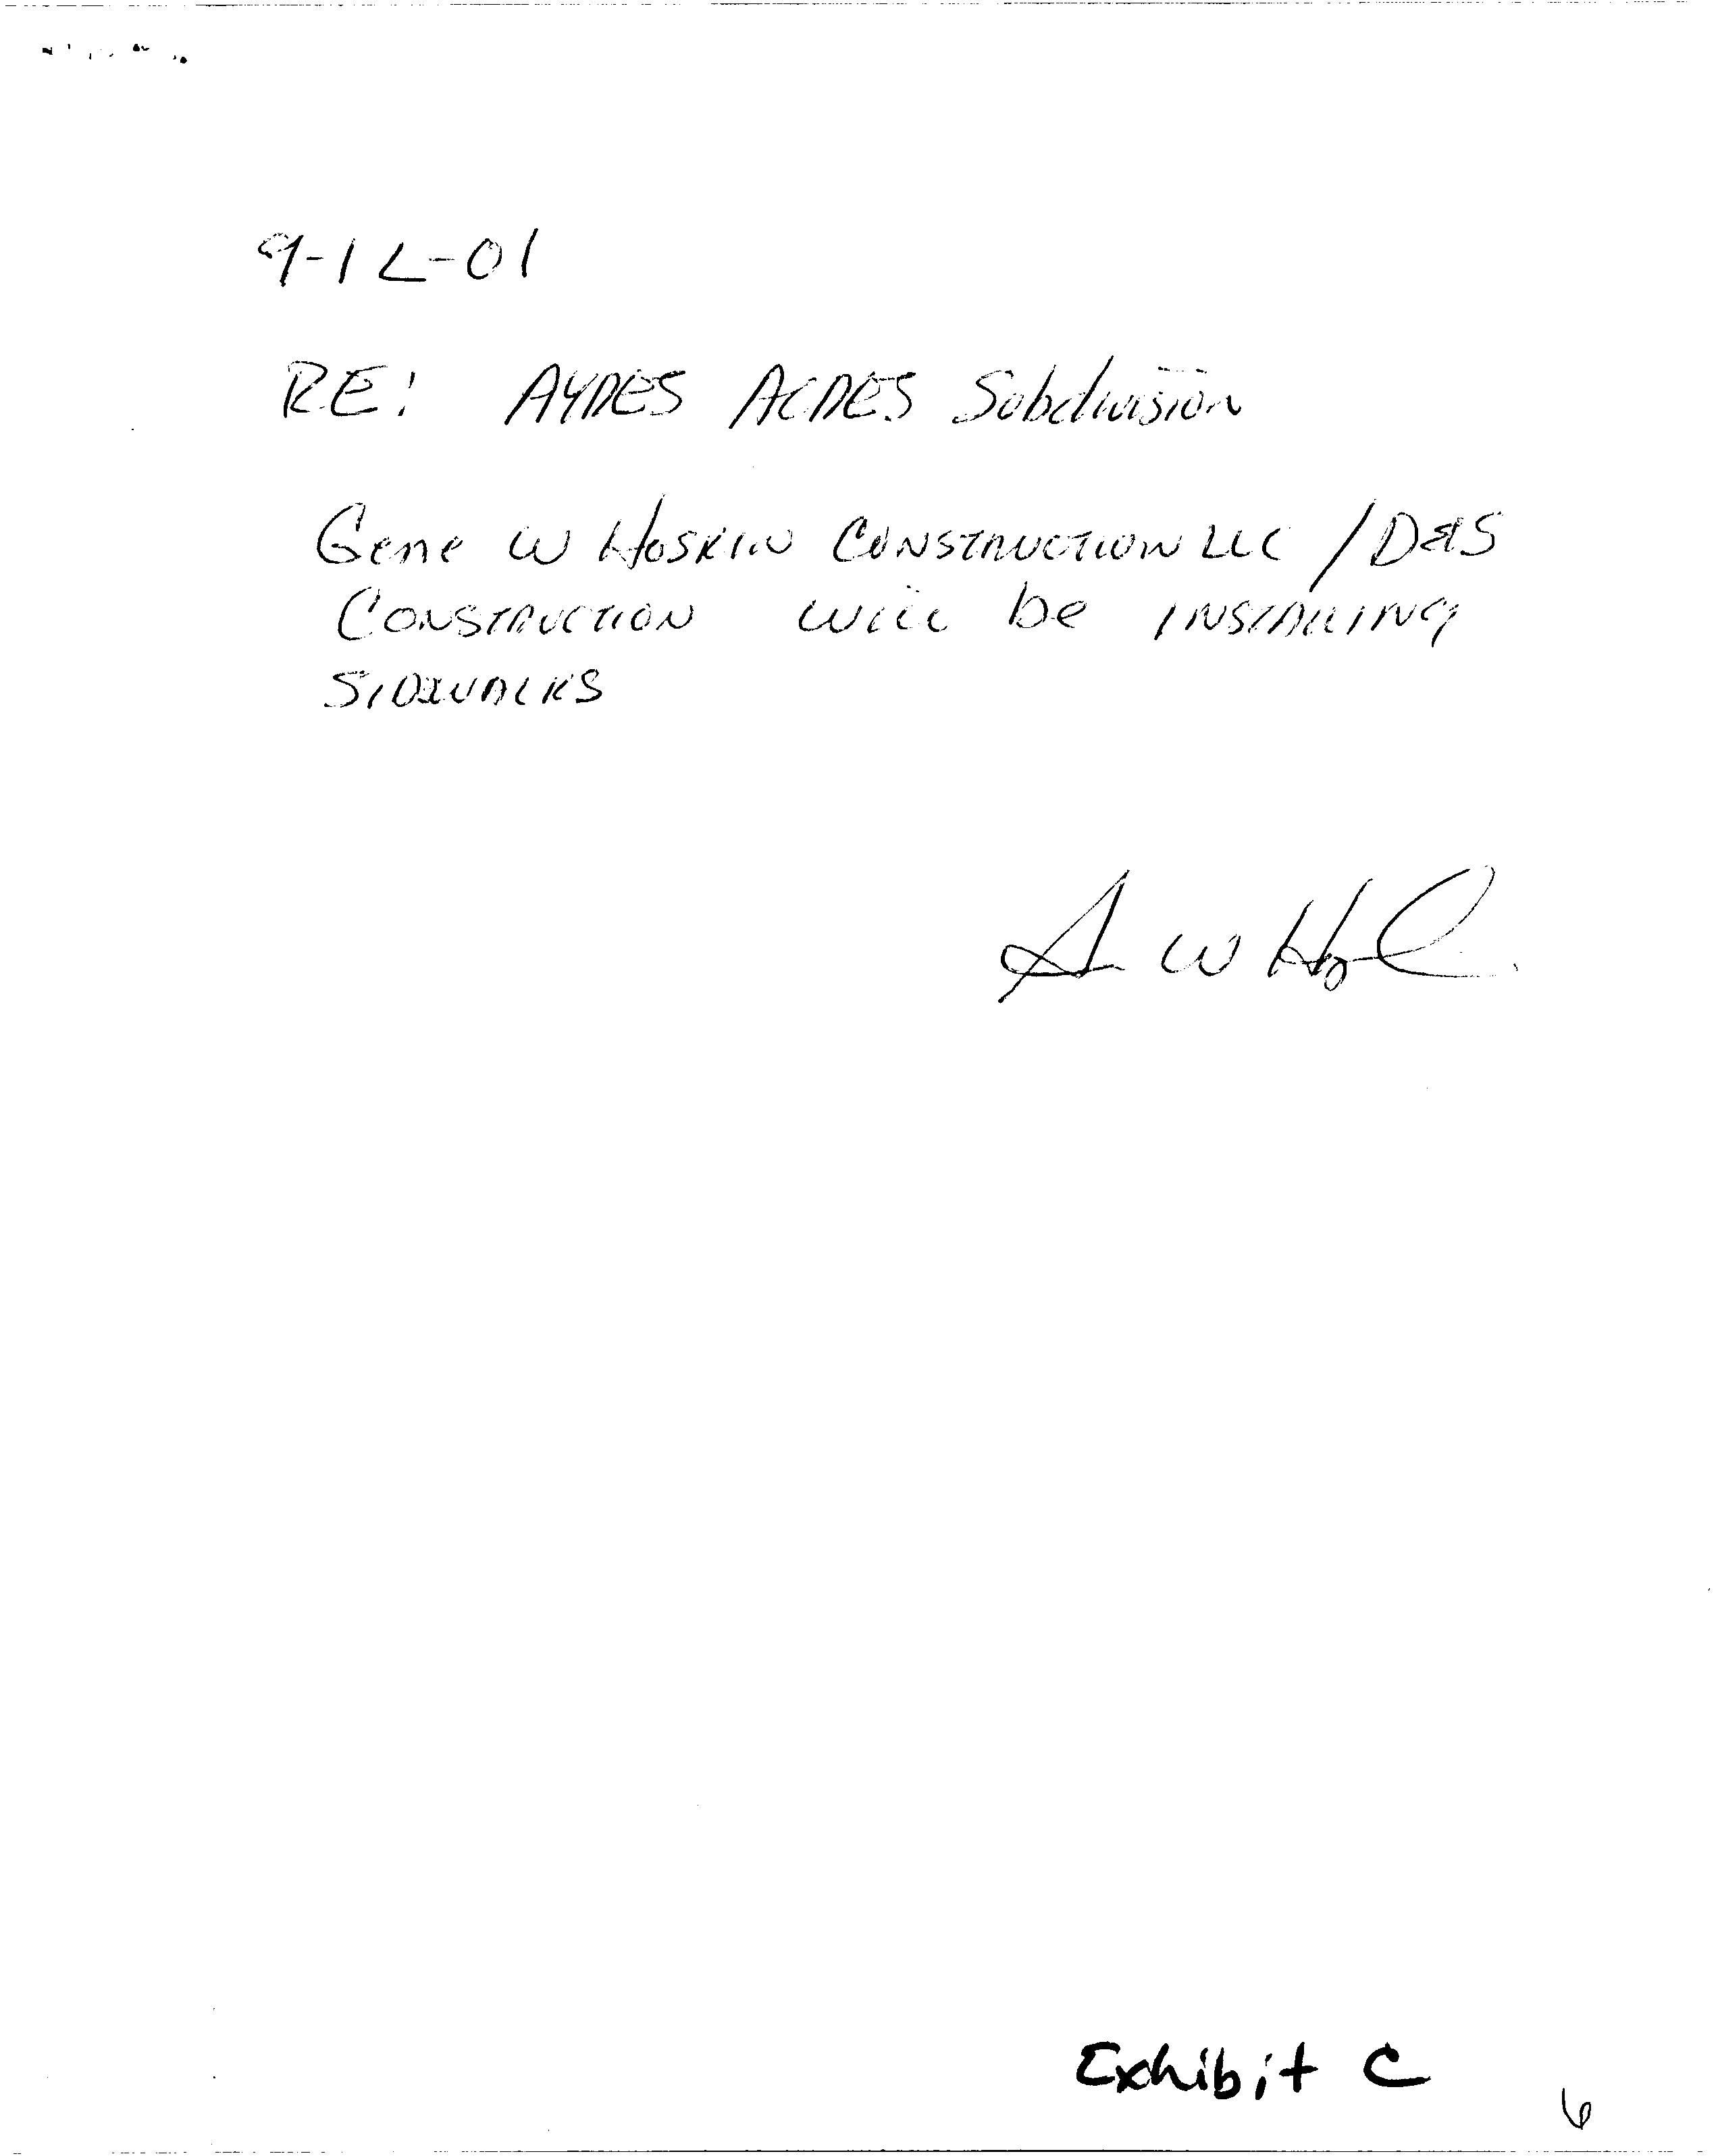 9-12-01
RE: AYRES ACRES Subdivision
Gene W HOSKIN CONSTRUCTION LLC / D&S
CONSTRUCTION will be INSTALLING
SIDEWALKS
Exhibit C
6